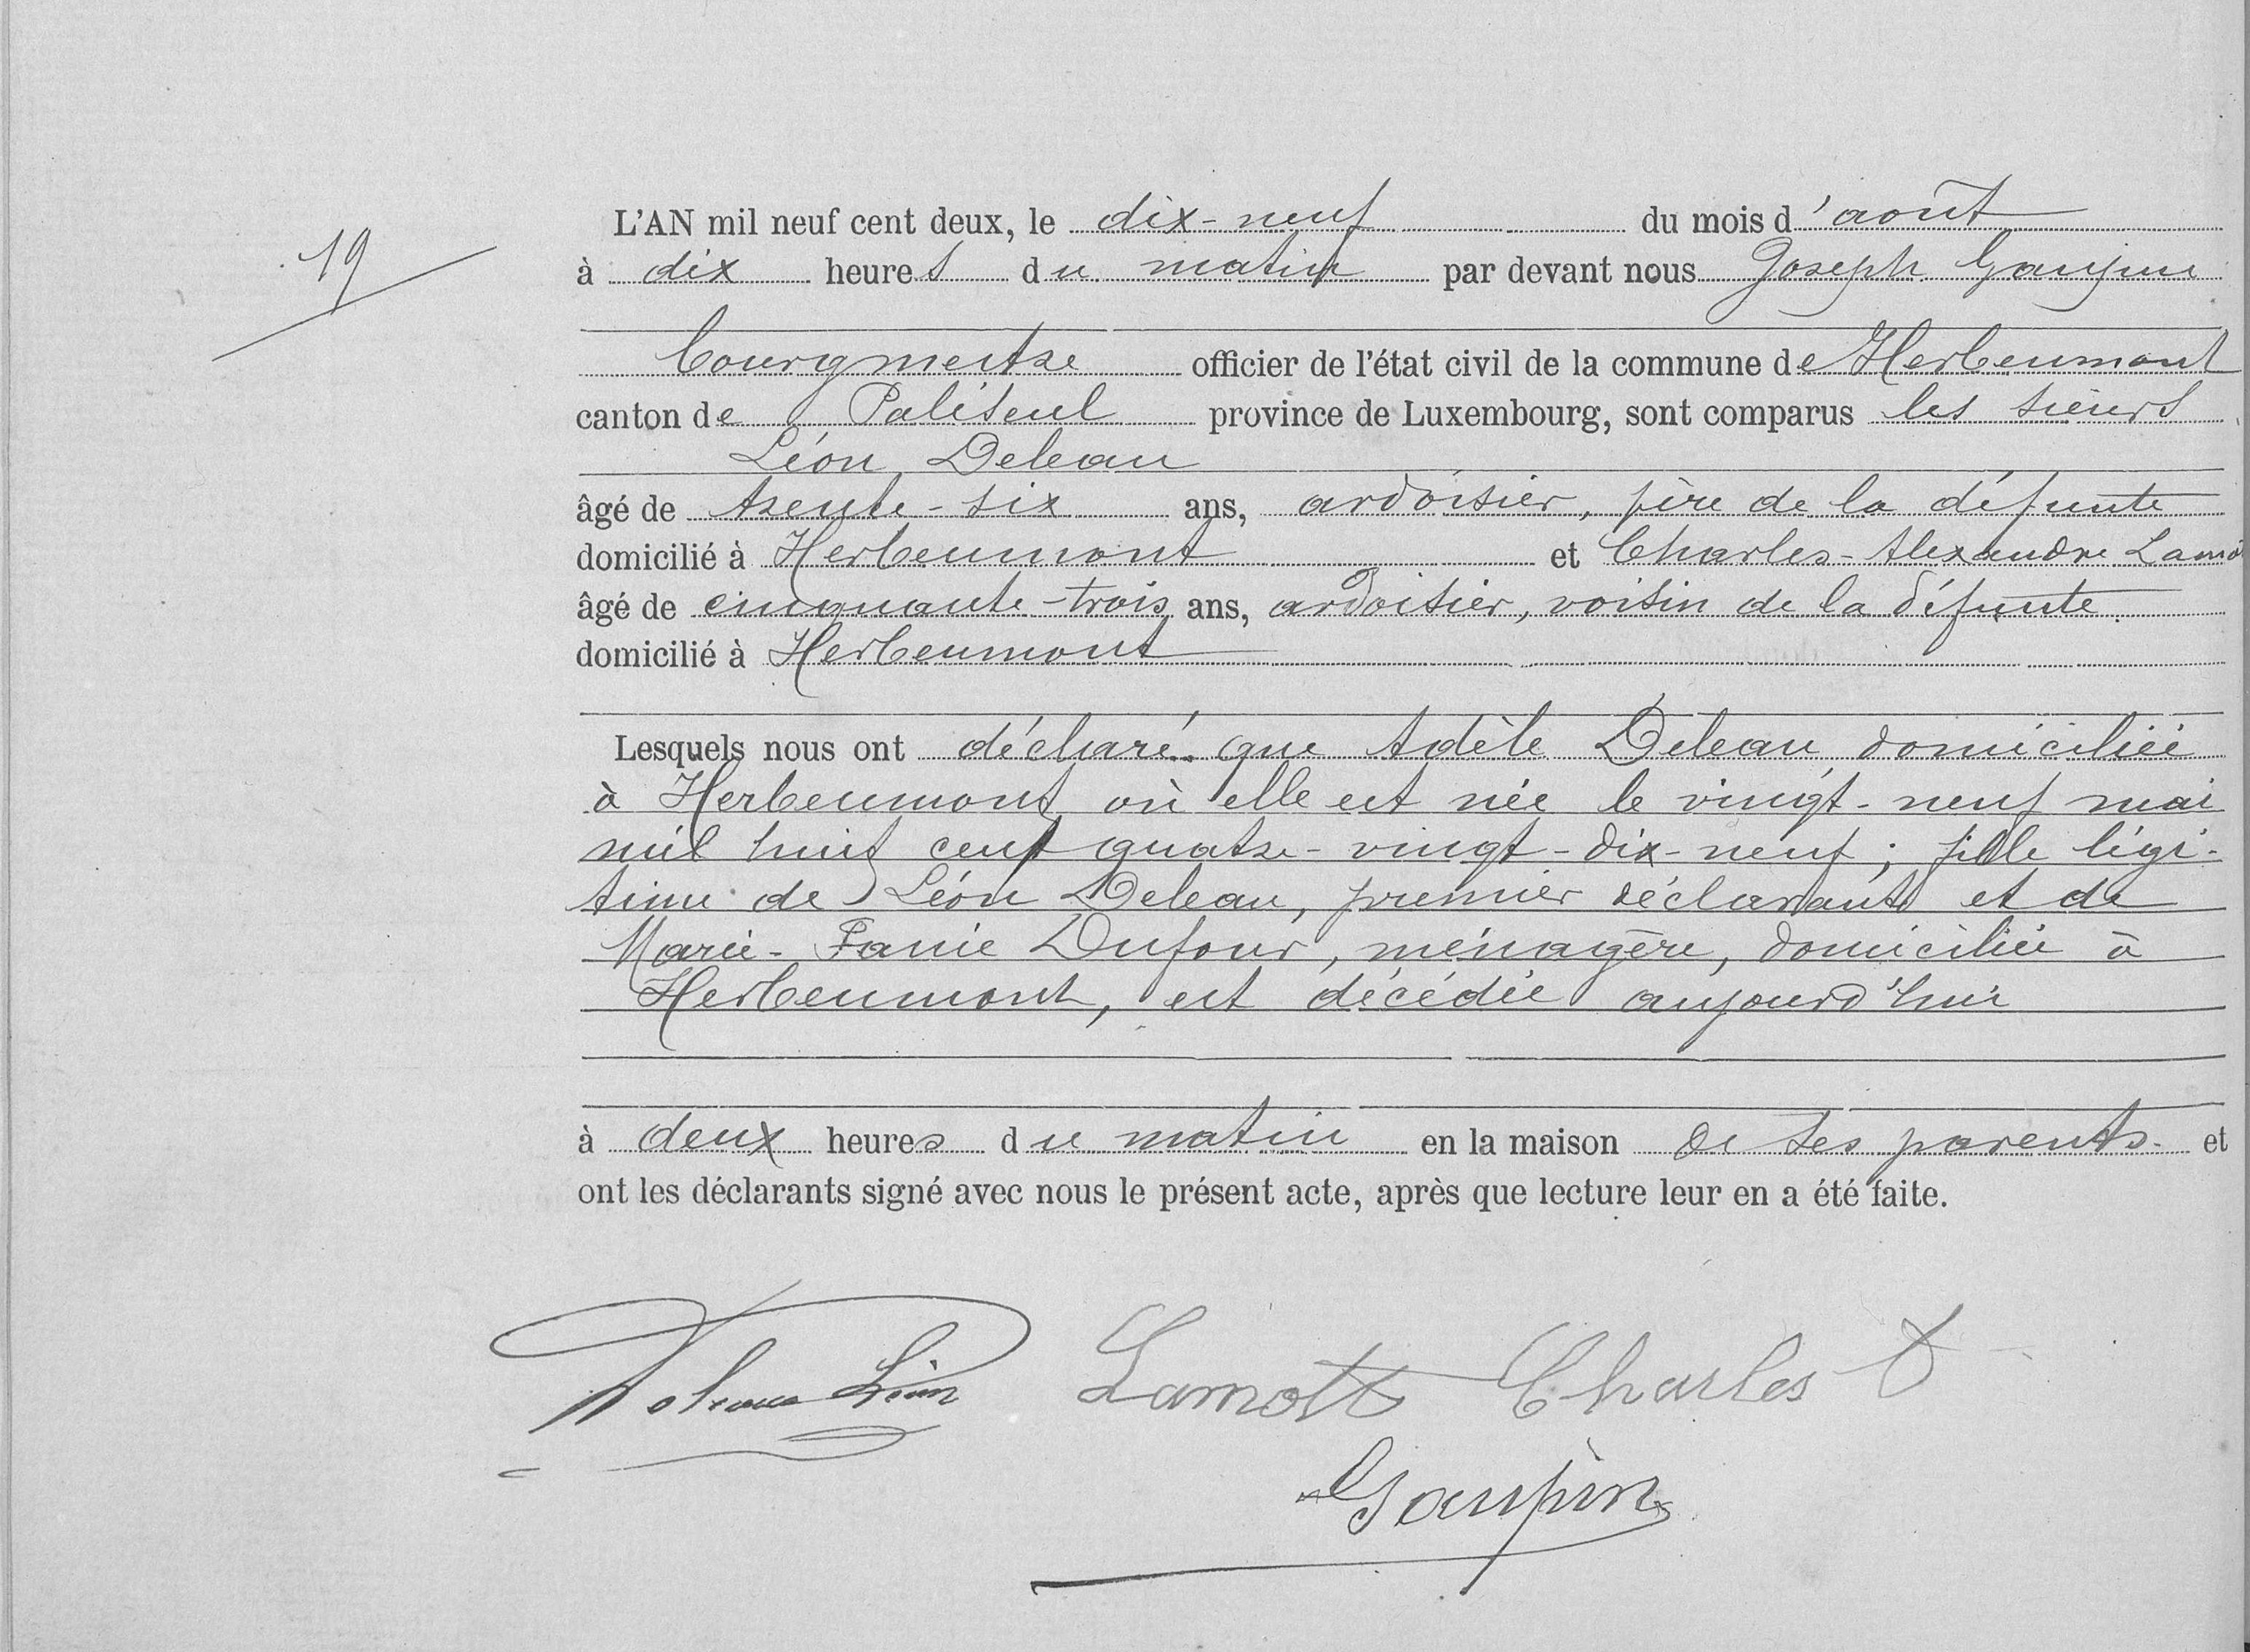 19
L'AN mil neuf cent deux, le dix-neuf du mois d'août
à dix heures du matin par devant nous Joseph Gaupin
bourgmestre officier de l'état civil de la commune de Herbeumont
canton de Paliseul province de Luxembourg, sont comparus les sieurs
Léon Deleau
âgé de trente-six ans, ardoisier, père de la défunte
domicilié à Herbeumont et Charles-Alexandre
âgé de cinquante-trois ans, ardoisier, voisin de la défunte
domicilié à Herbeumont
Lesquels nous ont déclaré que Adèle Deleau domiciliée
à Herbeumont où elle est née le vingt-neuf mai
mil huit cent quatre-vingt-dix-neuf; fille légi-
time de Léon Deleau, premier déclarant et de
Marie-Fanie Dufour, ménagère, domiciliée à
Herbeumont, est décédée aujourd'hui
à deux heures du matin en la maison de ses parents et
ont les déclarants signé avec nous le présent acte, après que lecture leur en a été faite.
Deleau Léon Lamott Charles
Gaupin